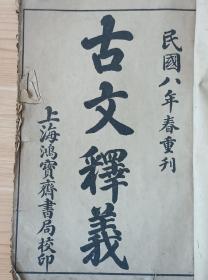 民國八年春重刊
古文釋義
上海鴻寶齋書局校印